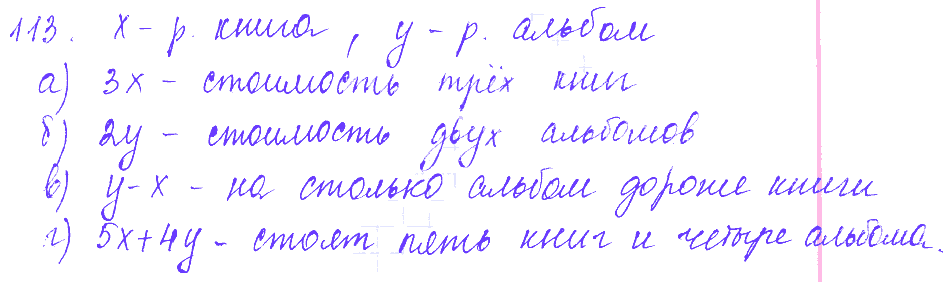 113. х – р. книга, у – р. альбом
а) 3х – стоимость трёх книг
б) 2у – стоимость двух альбомов
в) у – х – на столько альбом дороже книги
г) 5х + 4у – стоят пять книг и четыре альбома.